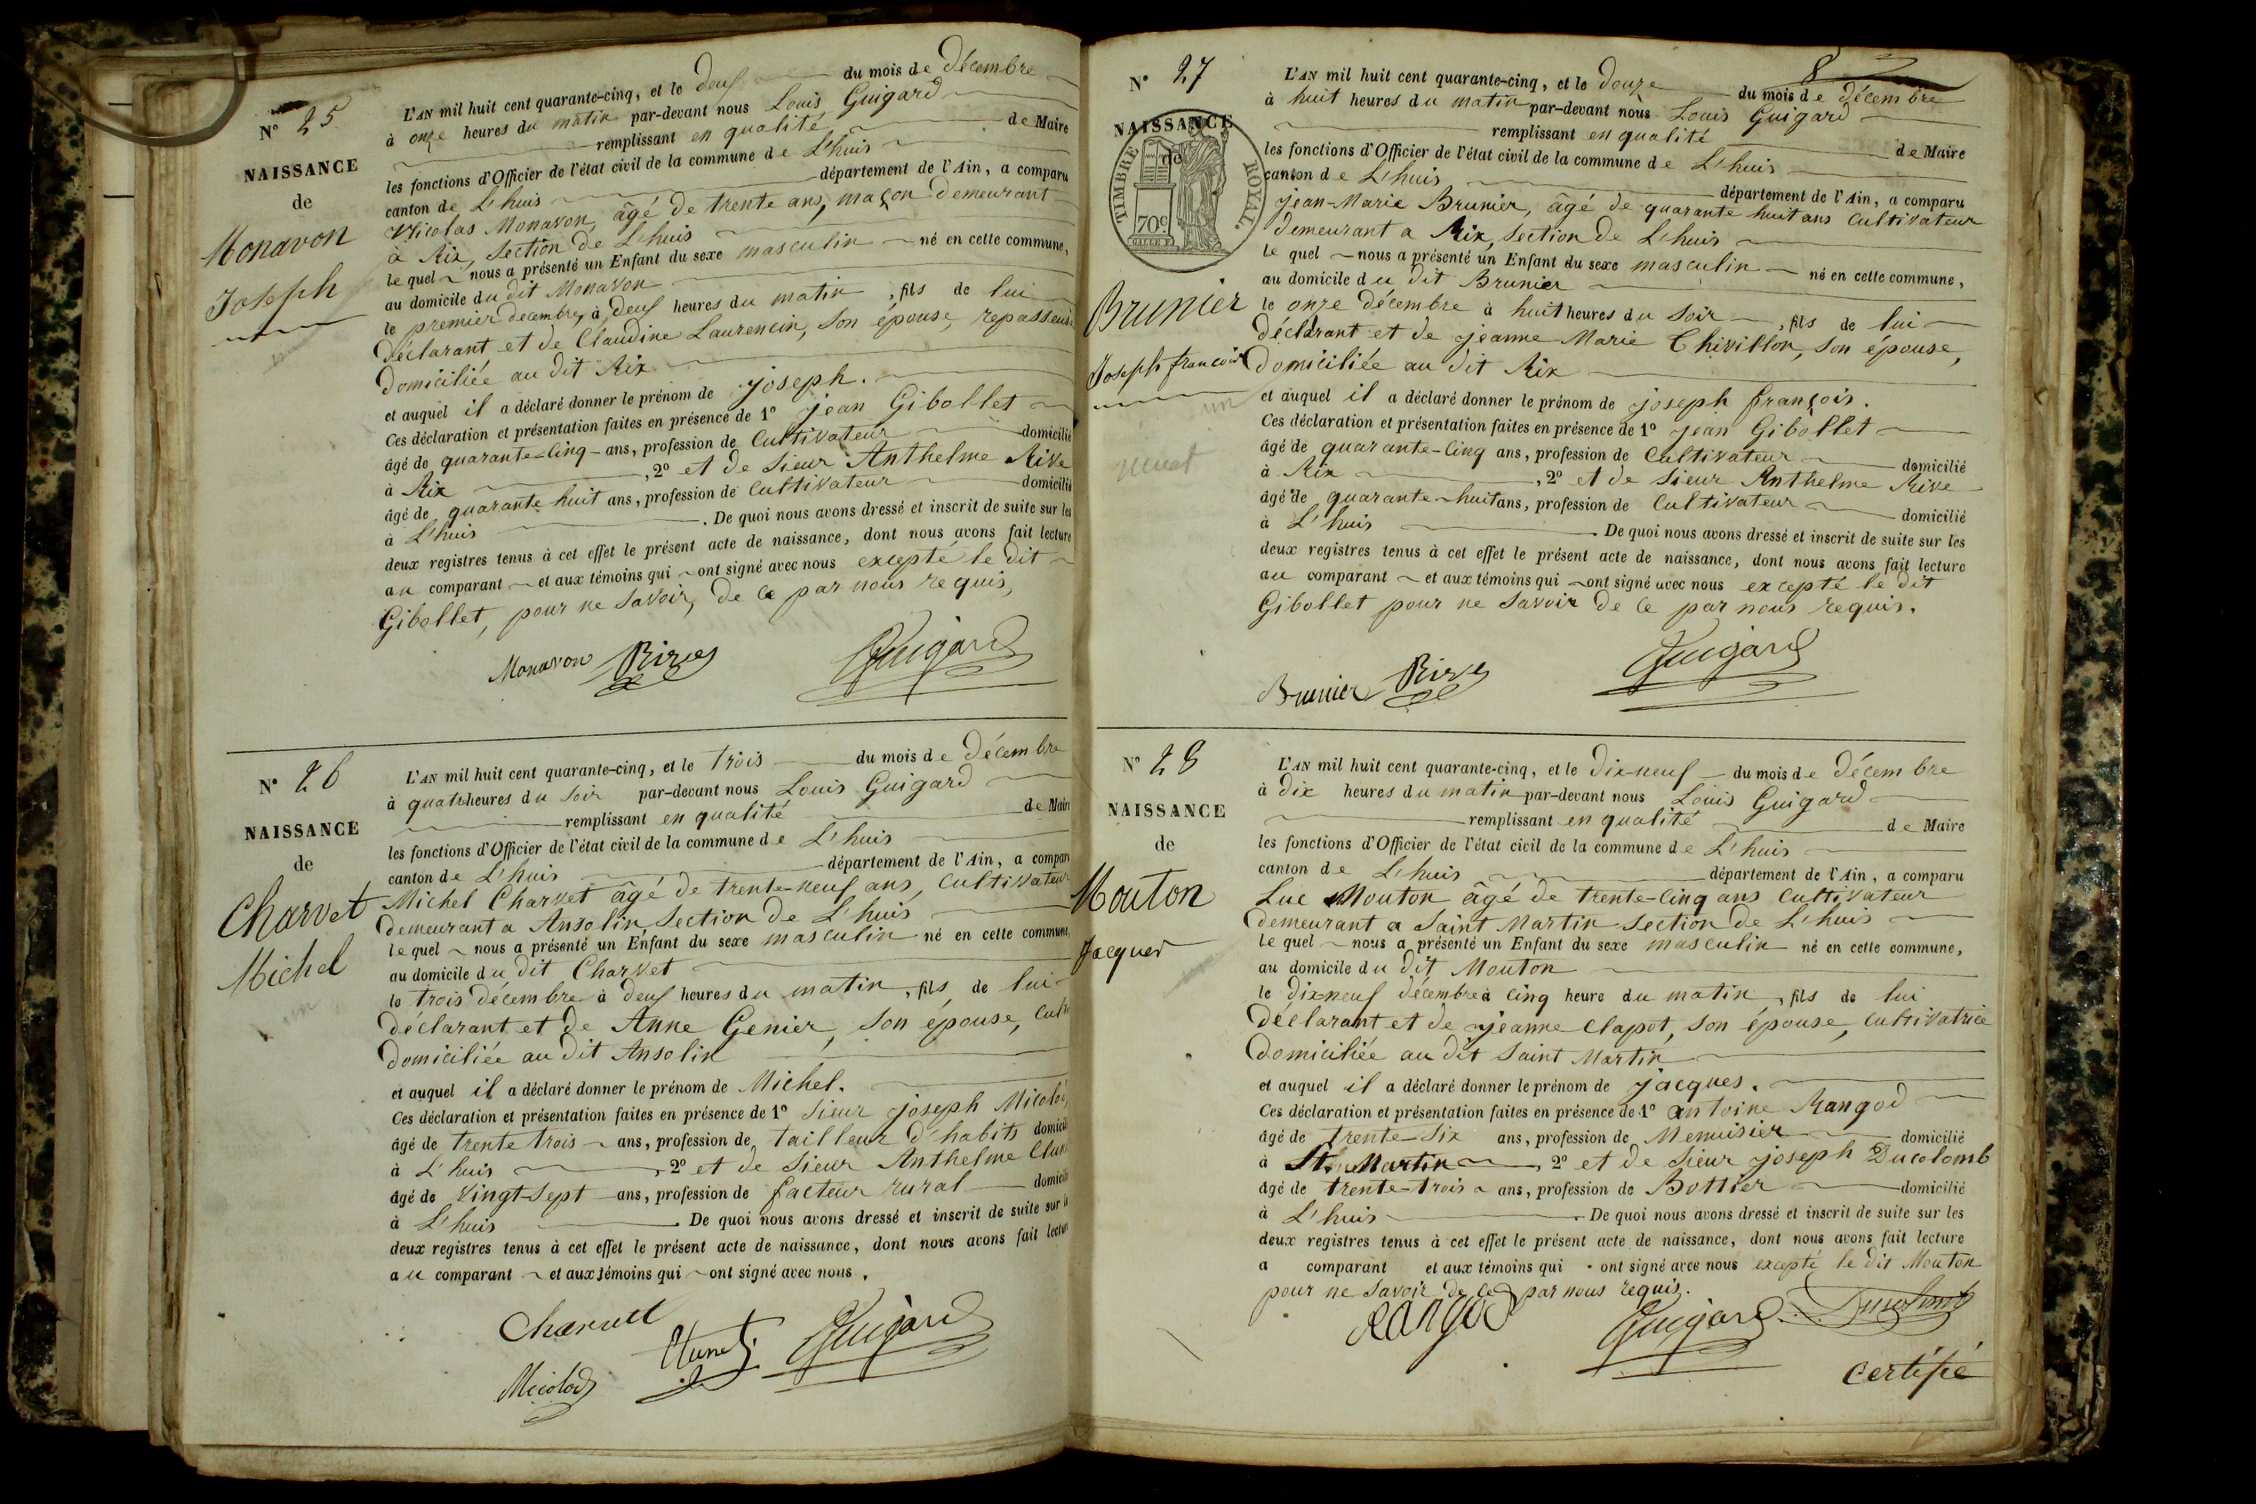 N° 25
NAISSANCE
de
Monavon
Joseph
L'AN mil huit cent quarante-cinq, et le deux du mois de décembre
à onze heures du matin par-devant nous Louis Guigard
remplissant en qualité de Maire
les fonctions d'Officier de l'état civil de la commune de L'huis
canton de L'huis département de l'Ain, a comparu
Nicolas Monavon, âgé de trente ans, maçon demeurant
à Rix, section de L'huis
lequel nous a présenté un Enfant du sexe masculin né en cette commune,
au domicile du dit Monavon
le premier decembre, à deux heures du matin, fils de lui
déclarant et de Claudine Laurencin, son épouse, repasseuse
domiciliée au dit Rix
et auquel il a déclaré donner le prénom de joseph.
Ces déclaration et présentation faites en présence de 1° jean Gibollet
âgé de quarante-cinq ans, profession de cultivateur domicilié
à Rix, 2° et de sieur Anthelme Rive
âgé de quarante huit ans, profession de cultivateur domicilié
à L'huis. De quoi nous avons dressé et inscrit de suite sur les
deux registres tenus à cet effet le présent acte de naissance, dont nous avons fait lecture
au comparant et aux témoins qui ont signé avec nous excepté le dit
Gibollet, pour ne savoir, de ce par nous requis,
Monavon Rive Guigard
N° 26
NAISSANCE
de
Charvet
Michel
L'AN mil huit cent quarante-cinq, et le trois du mois de décembre
à quatre heures du soir par-devant nous Louis Guigard
remplissant en qualité de Maire
les fonctions d'Officier de l'état civil de la commune de L'huis
canton de L'huis département de l'Ain, a comparu
Michel Charvet âgé de trente-neuf ans, cultivateur
demeurant a Ansolin section de L'huis
lequel nous a présenté un Enfant du sexe masculin né en cette commune,
au domicile du dit Charvet
le trois décembre à deux heures du matin, fils de lui
déclarant et de Anne Genier, son épouse, cult
domiciliée au dit Ansolin
et auquel il a déclaré donner le prénom de Michel.
Ces déclaration et présentation faites en présence de 1° sieur joseph Micolod
âgé de trente trois ans, profession de tailleur d'habits domicilié
à L'huis, 2° et de sieur Anthelme
âgé de vingt-sept ans, profession de facteur rural domicilié
à L'huis. De quoi nous avons dressé et inscrit de suite sur les
deux registres tenus à cet effet le présent acte de naissance, dont nous avons fait lecture
au comparant et aux témoins qui ont signé avec nous.
Charvet
Guigard
Micolod
8
N° 27
NAISSANCE
de
TIMBRE ROYAL.
70c
Brunier
Joseph françois
L'AN mil huit cent quarante-cinq, et le douze du mois de décembre
à huit heures du matin par-devant nous Louis Guigard
remplissant en qualité de Maire
les fonctions d'Officier de l'état civil de la commune de L'huis
canton de L'huis département de l'Ain, a comparu
jean-Marie Brunier, âgé de quarante huit ans cultivateur
demeurant a Rix, section de L'huis
lequel nous a présenté un Enfant du sexe masculin né en cette commune,
au domicile du dit Brunier
le onze décembre à huit heures du soir, fils de lui
déclarant et de jeanne Marie Chivillon, son épouse,
domiciliée au dit Rix
et auquel il a déclaré donner le prénom de joseph françois.
Ces déclaration et présentation faites en présence de 1° jean Gibollet
âgé de quarante-cinq ans, profession de cultivateur domicilié
à Rix, 2° et de sieur Anthelme Rive
âgé de quarante-huit ans, profession de cultivateur domicilié
à L'huis. De quoi nous avons dressé et inscrit de suite sur les
deux registres tenus à cet effet le présent acte de naissance, dont nous avons fait lecture
au comparant et aux témoins qui ont signé avec nous excepté le dit
Gibollet pour ne savoir de ce par nous requis.
Brunier Rive Guigard
N° 28
NAISSANCE
de
Mouton
Jacques
L'AN mil huit cent quarante-cinq, et le dix-neuf du mois de décembre
à dix heures du matin par-devant nous Louis Guigard
remplissant en qualité de Maire
les fonctions d'Officier de l'état civil de la commune de L'huis
canton de L'huis département de l'Ain, a comparu
Luc Mouton âgé de trente-cinq ans cultivateur
demeurant a Saint Martin section de L'huis
lequel nous a présenté un Enfant du sexe masculin né en cette commune,
au domicile du dit Mouton
le dix-neuf décembre à cinq heure du matin, fils de lui
déclarant et de jeanne Clapot, son épouse, cultivatrice
domiciliée au dit Saint Martin
et auquel il a déclaré donner le prénom de jacques.
Ces déclaration et présentation faites en présence de 1° antoine Rangod
âgé de trente-six ans, profession de Menuisier domicilié
à St. Martin, 2° et de sieur joseph Ducolomb
âgé de trente-trois ans, profession de Bottier domicilié
à L'huis. De quoi nous avons dressé et inscrit de suite sur les
deux registres tenus à cet effet le présent acte de naissance, dont nous avons fait lecture
a comparant et aux témoins qui ont signé avec nous excepté le dit Mouton
pour ne savoir de ce par nous requis.
Rangod Guigard Ducolomb
certifié